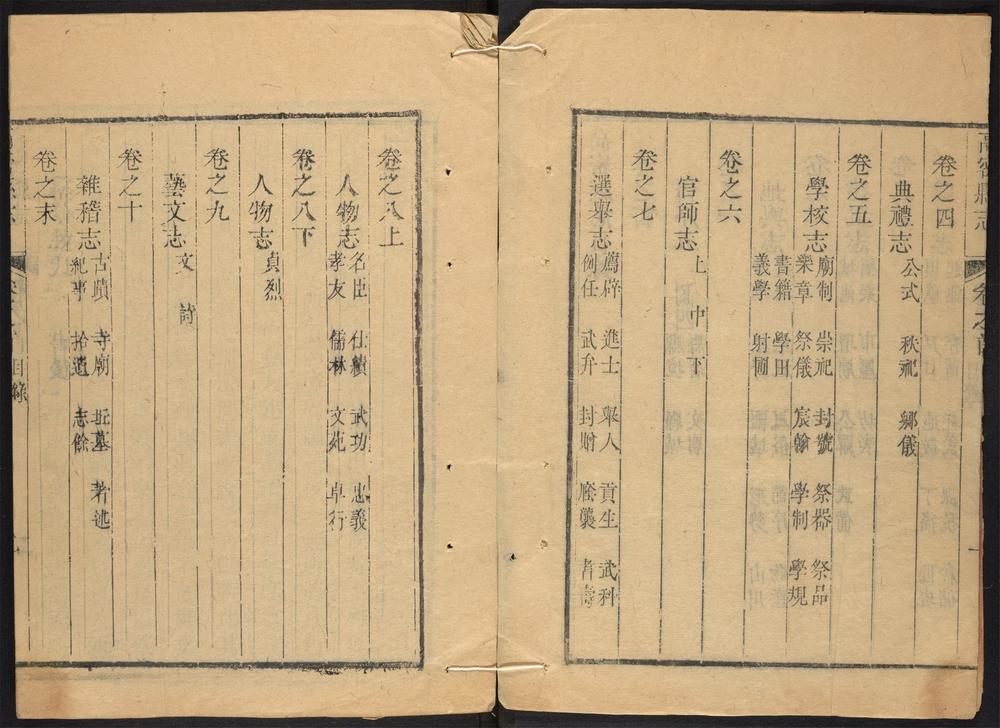 高密縣志
卷之四
典禮志
公式 秋祀 鄉儀
卷之五
學校志
廟制 崇祀 封號 祭器 祭品
樂章 祭儀 宸翰 學制 學規
書籍 學田
義學 射圃
卷之六
官師志
上 中 下
卷之七
選舉志
薦辟 進士 舉人 貢生 武科
例任 武弁 封贈 廕襲 耆壽
卷之八上
人物志
名臣 仕績 武功 忠義
孝友 儒林 文苑 卓行
卷之八下
人物志
貞烈
卷之九
藝文志
文 詩
卷之十
雜稽志
古蹟 寺廟 丘墓 著述
紀事 拾遺 志餘
卷之末
目錄